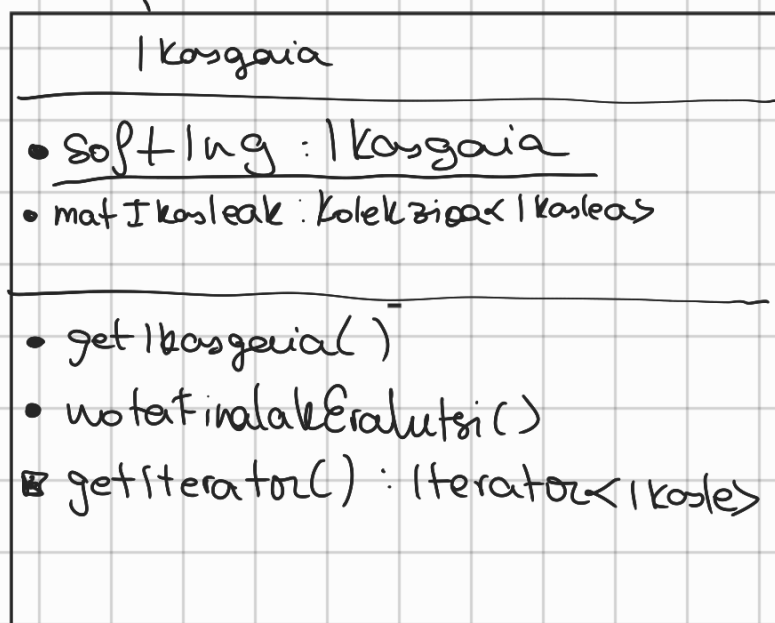 Ikasgaia
• softIng : Ikasgaia
• matIkasleak : Kolekzioa<Ikaslea>
• getIkasgaia()
• notaFinalakEzalutsi()
getIterator() : Iterator<Ikasle>